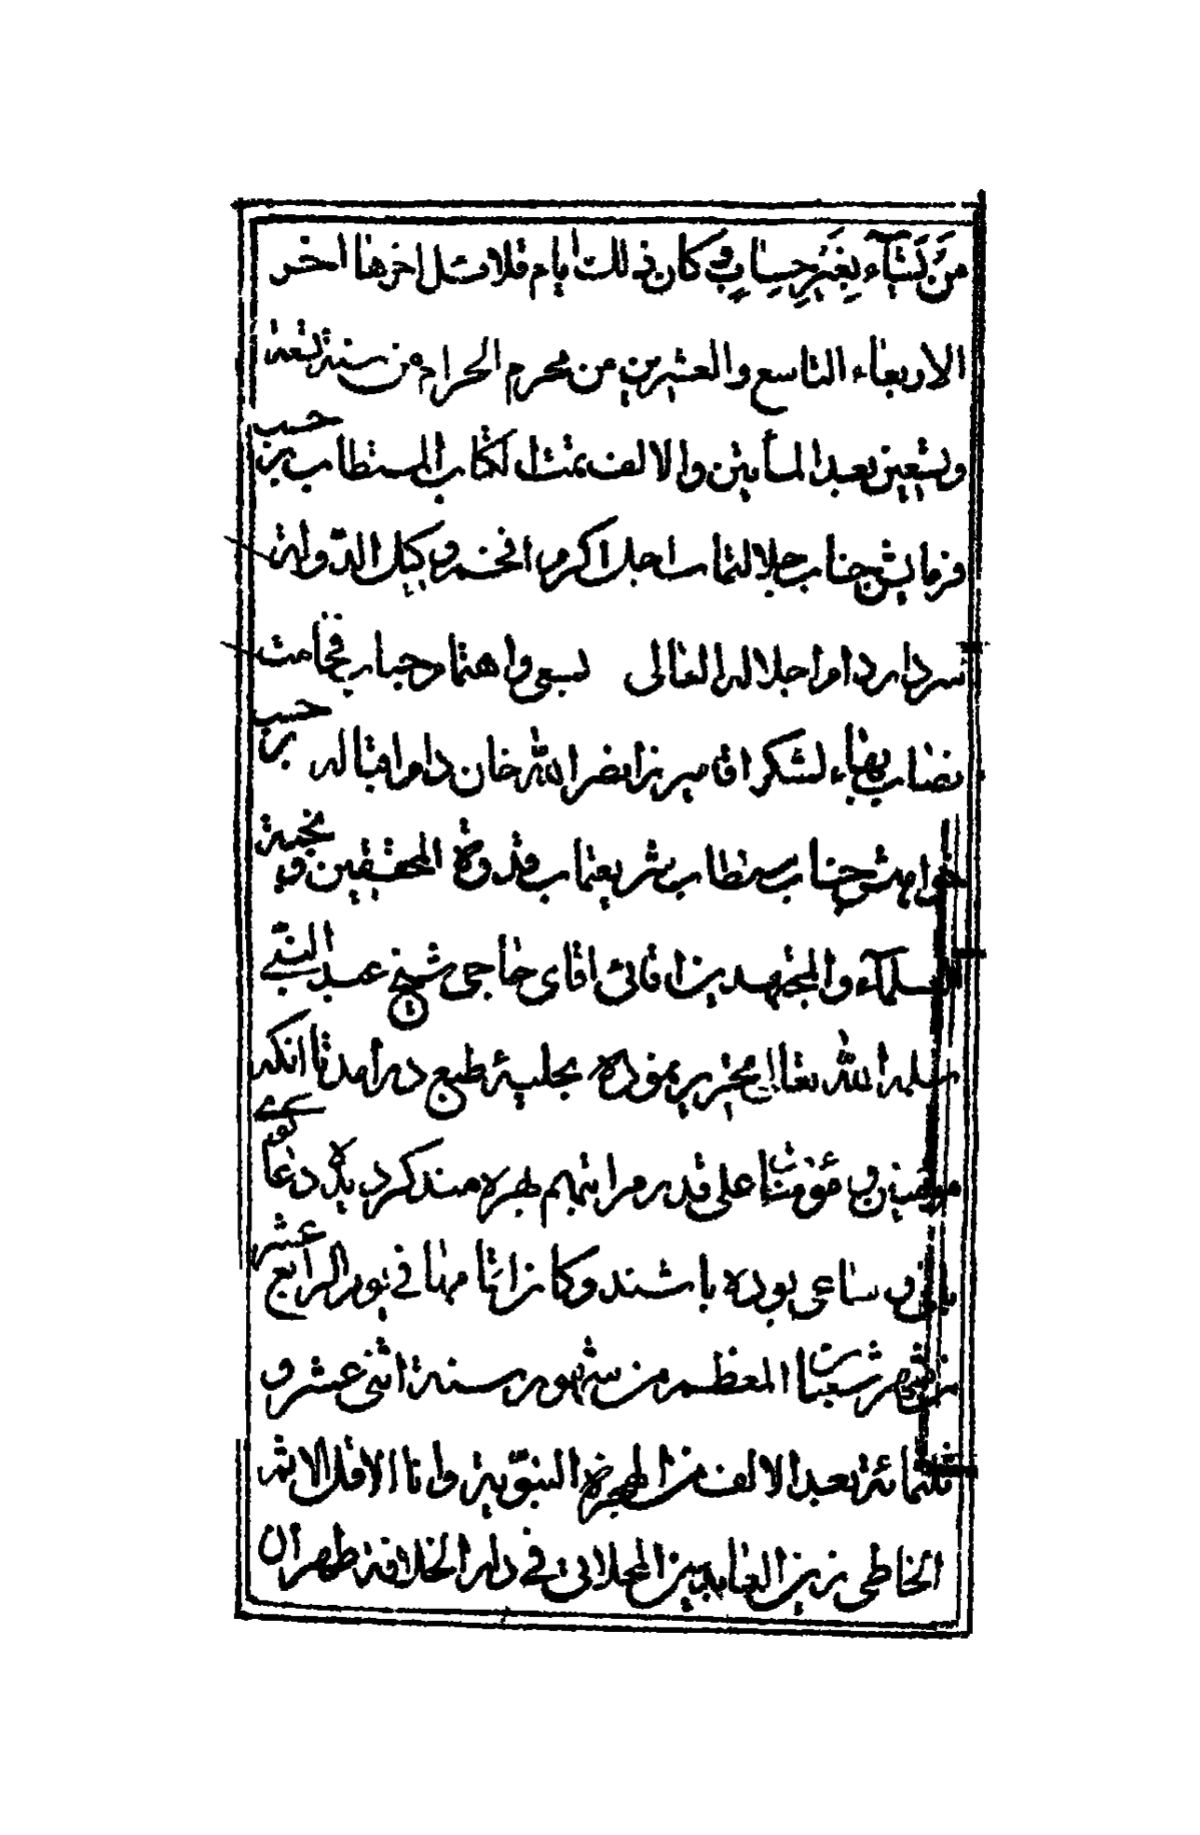 مَن تَشَآء بِغَيرِ حِسٰابٍ و کان ذلك ایام قلائل اخرها اخر
الاربعاء التاسع والعشرین من محرم الحرام من سنة تسعة
وتسعین بعد المأتین والالف تمثل الکتاب المستطاب بر حسب
فرمایش جناب جلالتمآب اجل اکرم افخم وکیل الدّولة
سردار دام اجلاله العالی بسعی و اهتمام جناب فخامت
نصاب بهاء لشکر اقا میرزا نصر الله خان دام اقباله بر حسب
خواهش جناب مستطاب شریعتماب قدوة المحققین و نخبة
العلمآء والمجتهدین اقائی اقای حاجی شیخ عبد النبی
سلمه الله تعالی تحریر نموده بحلیهٔ طبع درآمد تا انکه
مؤمنین و مؤمنات علی قدر مراتبهم بهره مند گردیده دعا گوی
بانی و ساعی بوده باشند وکان اتمامها فی یوم الرابع عشر
من شهر شعبان المعظم من شهور سنة اثنی عشر و
ثلثمائة بعد الالف من الهجرة النبویّة وانا الاقل الاثم
الخاطی زین العابدین المحلاتی فی دار الخلافة طهران